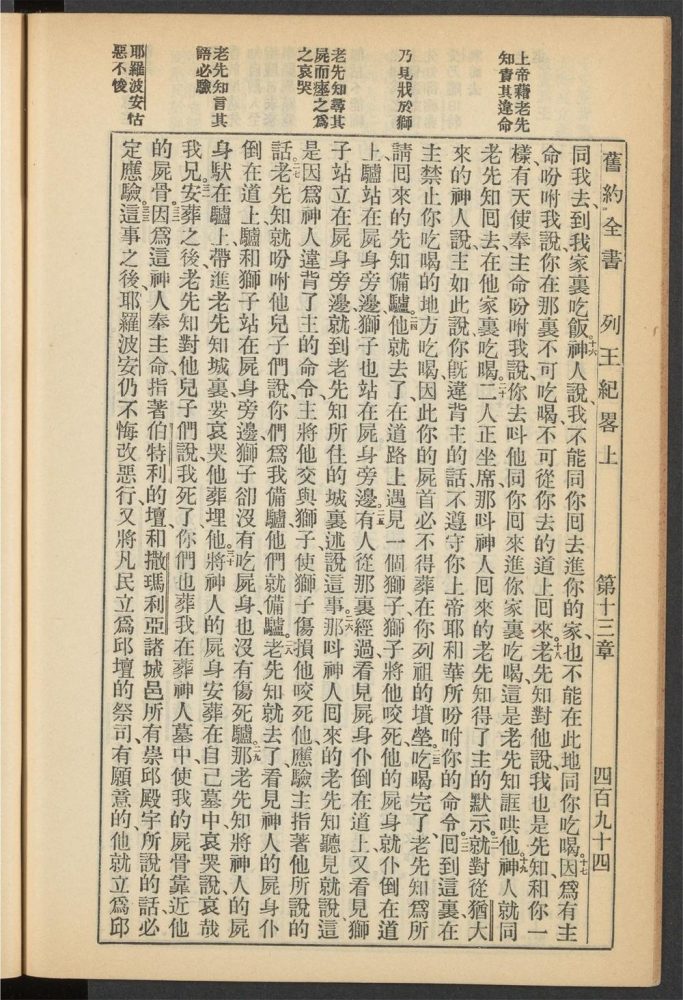 上帝藉老先
知責其違命
乃見戕於獅
老先知尋其
屍而瘞之爲
之哀哭
老先知言其
語必驗
耶羅波安怙
惡不悛
舊約全書 列王紀畧上 第十三章 四百九十四
同我去到我家裏吃飯、十六神人說、我不能同你回去進你的家、也不能在此地同你吃喝、十七因爲有主
命吩咐我說、你在那裏不可吃喝、不可從你去的道上回來。十八老先知對他說、我也是先知、和你一
樣、有天使奉主命吩咐我說、你去呌他同你回來、進你家裏吃喝、這是老先知誆哄他。十九神人就同
老先知回去、在他家裏吃喝。二十二人正坐席、那呌神人回來的老先知得了主的默示。二一就對從猶大
來的神人說、主如此說、你旣違背主的話、不遵守你上帝耶和華所吩咐你的命令。二二回到這裏、在
主禁止你吃喝的地方吃喝、因此你的屍首必不得葬在你列祖的墳塋。二三吃喝完了、老先知爲所
請回來的先知備驢。二四他就去了、在道路上遇見一個獅子、獅子將他咬死、他的屍身就仆倒在道
上、驢站在屍身旁邊、獅子也站在屍身旁邊。二五有人從那裏經過、看見屍身仆倒在道上、又看見獅
子站立在屍身旁邊、就到老先知所住的城裏述說這事。二六那呌神人回來的老先知聽見就說、這
是因爲神人違背了主的命令、主將他交與獅子、使獅子傷損他咬死他、應驗主指著他所說的
話。二七老先知就吩咐他兒子們說、你們爲我備驢、他們就備驢。二八老先知就去了、看見神人的屍身仆
倒在道上、驢和獅子站在屍身旁邊、獅子卻沒有吃屍身、也沒有傷死驢。二九那老先知將神人的屍
身馱在驢上、帶進老先知城裏、要哀哭他葬埋他。三十將神人的屍身安葬在自己墓中、哀哭說、哀哉
我兄。三一安葬之後、老先知對他兒子們說、我死了、你們也葬我在葬神人墓中、使我的屍骨靠近他
的屍骨。三二因爲這神人奉主命、指著伯特利的壇、和撒瑪利亞諸城邑所有崇邱殿宇所說的話、必
定應驗。三三這事之後、耶羅波安仍不悔改惡行、又將凡民立爲邱壇的祭司、有願意的、他就立爲邱